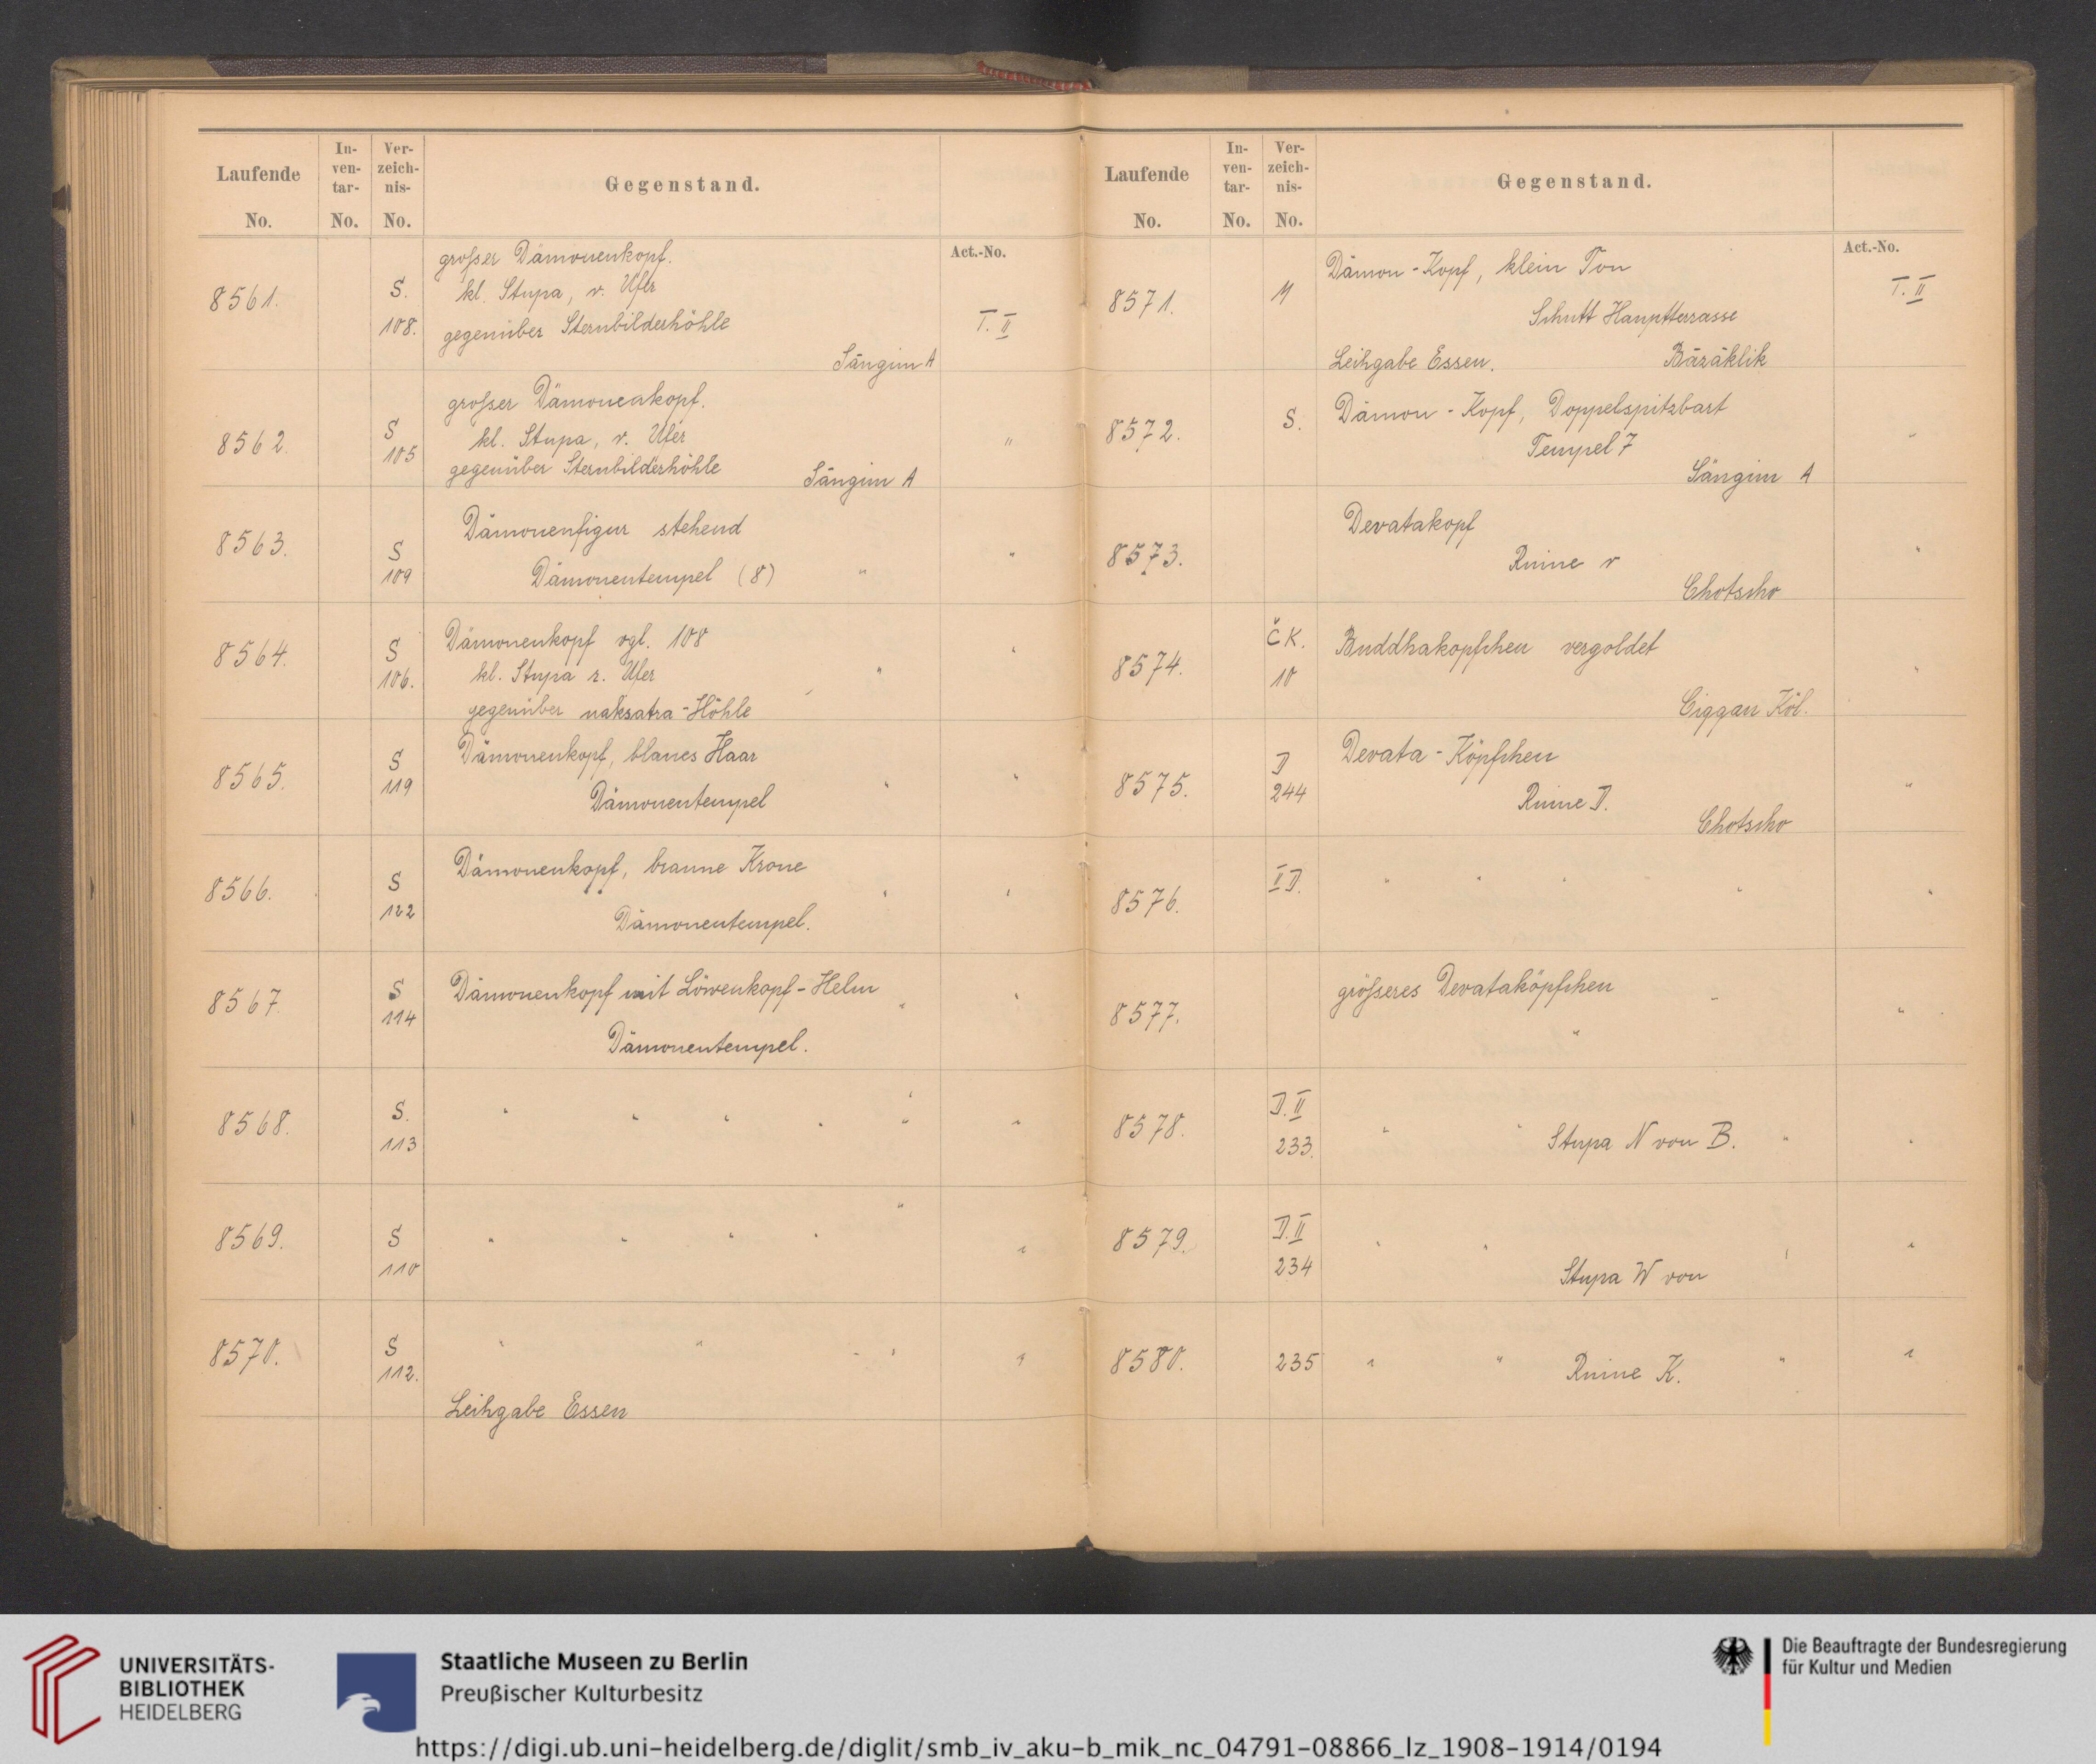 Laufende No. In-ven-tar-No. Ver-zeich-nis-No. Gegenstand.
Act.-No.
8561. S. 108. großer Dämonenkopf.
kl. Stupa, r. Ufer
gegenüber Sternbilderhöhle T. II
Sängim A
8562. S 105 großer Dämonenkopf.
kl. Stupa, r. Ufer "
gegenüber Sternbilderhöhle Sängim A
8563. S 109 Dämonenfigur stehend
Dämonentempel (8) " "
8564. S 106. Dämonenkopf vgl. 108
kl. Stupa r. Ufer " "
gegenüber naksatra-Höhle
8565. S 119 Dämonenkopf, blaues Haar
Dämonentempel " "
8566. S 122 Dämonenkopf, braune Krone " "
Dämonentempel.
8567. S 114 Dämonenkopf mit Löwenkopf-Helm " "
Dämonentempel.
8568. S. 113 " " " " " "
8569. S 110 " " " " " "
8570. S 112. " " " " "
Leihgabe Essen
Laufende No. In-ven-tar-No. Ver-zeich-nis-No. Gegenstand.
Act.-No.
8571. M Dämon-Kopf, klein Ton T. II
Schutt Hauptterrasse
Leihgabe Essen. Bäzäklik
8572. S. Dämon-Kopf, Doppelspitzbart
Tempel 7 "
Sängim A
8573. Devatakopf "
Ruine v
Chotscho
8574. ČK. 10 Buddhakopfchen vergoldet "
Ciggan Köl.
8575. D 244 Devata-Köpfchen
Ruine D. "
Chotscho
8576. II D. " " " " "
8577. größeres Devataköpfchen " "
"
8578. D. II 233. " " Stupa N von B. " "
8579. D. II 234 " " " "
Stupa W von
8580. 235 " " Ruine K. " "
UNIVERSITÄTS-
BIBLIOTHEK
HEIDELBERG
Staatliche Museen zu Berlin
Preußischer Kulturbesitz
Die Beauftragte der Bundesregierung
für Kultur und Medien
https://digi.ub.uni-heidelberg.de/diglit/smb_iv_aku-b_mik_nc_04791-08866_lz_1908-1914/0194